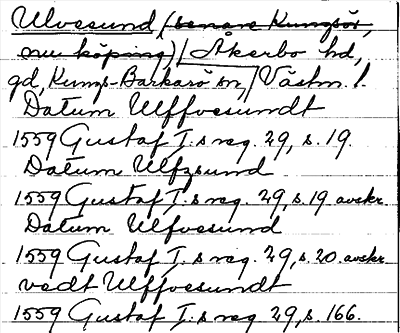 Ulvesund (senare Kungsör,
nu köping) / Åkerbo hd,
gd, Kungs-Barkarö sn / Västm. l.
Datum Ulffvesundt
1559 Gustaf I.s reg. 29, s. 19.
Datum Ulfzsund
1559 Gustaf I.s reg. 29, s. 19 avskr.
Datum Ulfvesund
1559 Gustaf I.s reg. 29, s. 20. avskr.
vedt Ulffvesundt
1559 Gustaf I.s reg. 29, s. 166.